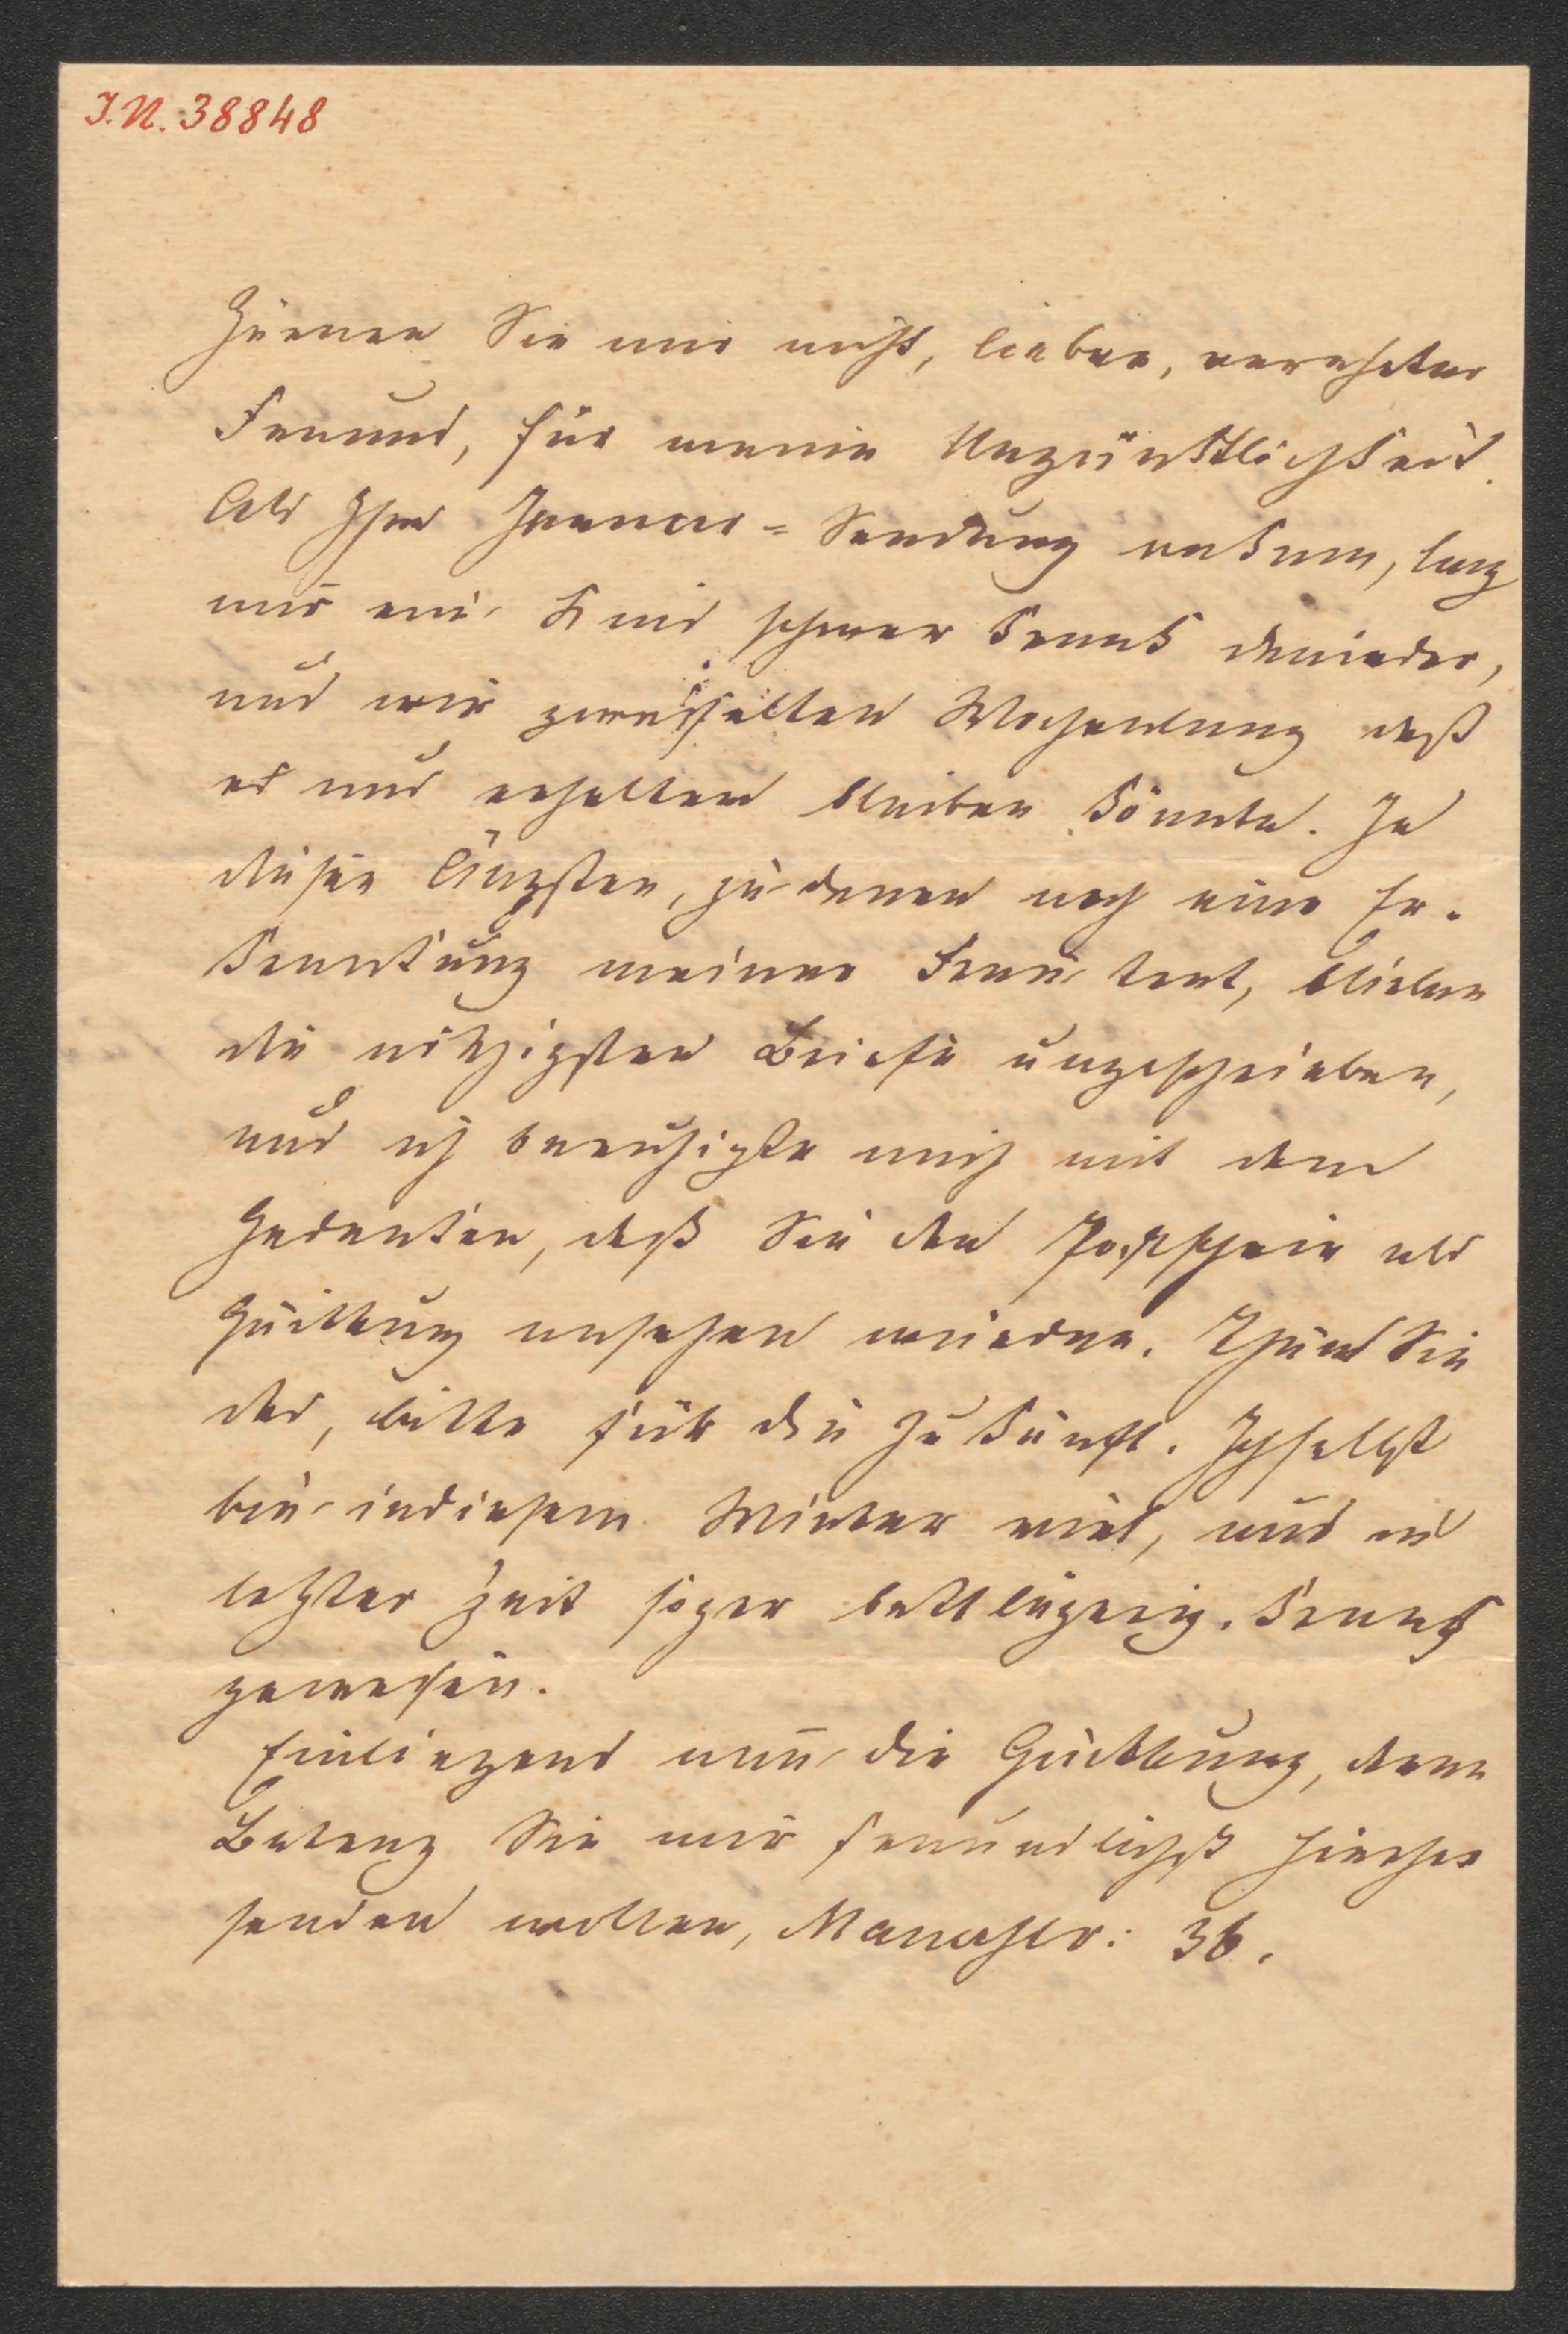 I.N. 38848
Zürnen Sie mir nicht, lieber, verehrter
Freund, für meine Unpünktlichkeit.
Als Ihre Januar-Sendung ankam, lag
mir ein Kind schwer krank danieder,
und wir zweifelten Wochenlang daß
es uns erhalten bleiben könnte. In
diesen Ängsten, zu denen noch eine Er-
krankung meiner Frau trat, blieben
die nöthigsten Briefe ungeschrieben,
und ich beruhigte mich mit dem
Gedanken, daß Sie den Postschein als
Quittung ansehen würden. Thun Sie
das, bitte für die Zukunft. Ich selbst
bin in diesem Winter viel, und in
letzter Zeit sogar bettlägerig krank
gewesen.
Einliegend nun die Quittung, deren
Betrag Sie mir freundlichst hierher
senden wollen, 36.